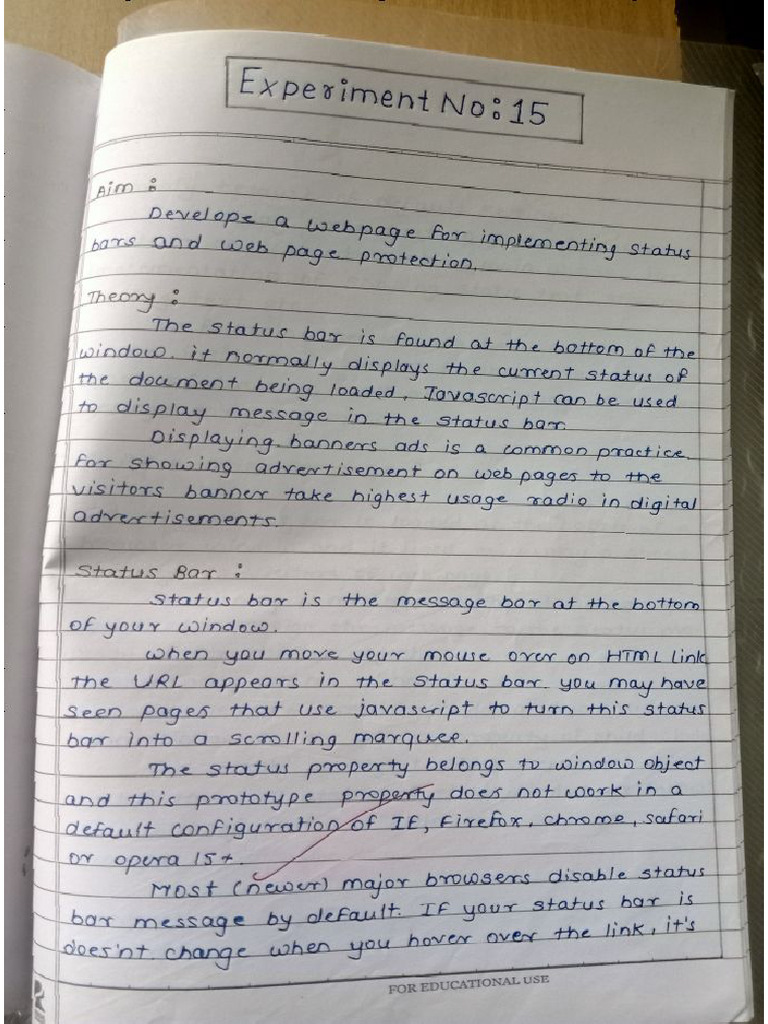 Experiment No: 15
Aim :
Develope a webpage for implementing status
bars and web page protection.
Theory :
The status bar is found at the bottom of the
window. it normally displays the current status of
the document being loaded, Javascript can be used
to display message in the status bar
Displaying banners ads is a common practice
for showing advertisement on web pages to the
visitors banner take highest usage radio in digital
advertisements.
Status Bar :
Status bar is the message bar at the bottom
of your window.
When you move your mouse over on HTML link
the URL appears in the status bar. you may have
seen pages that use javascript to turn this status
bar into a scrolling marquee.
The status property belongs to window object
and this prototype property does not work in a
default configuration of IE, Firefox, chrome, safari
or opera 15+.
Most (newer) major browsers disable status
bar message by default. If your status bar is
does'nt change when you hover over the link, it's
FOR EDUCATIONAL USE